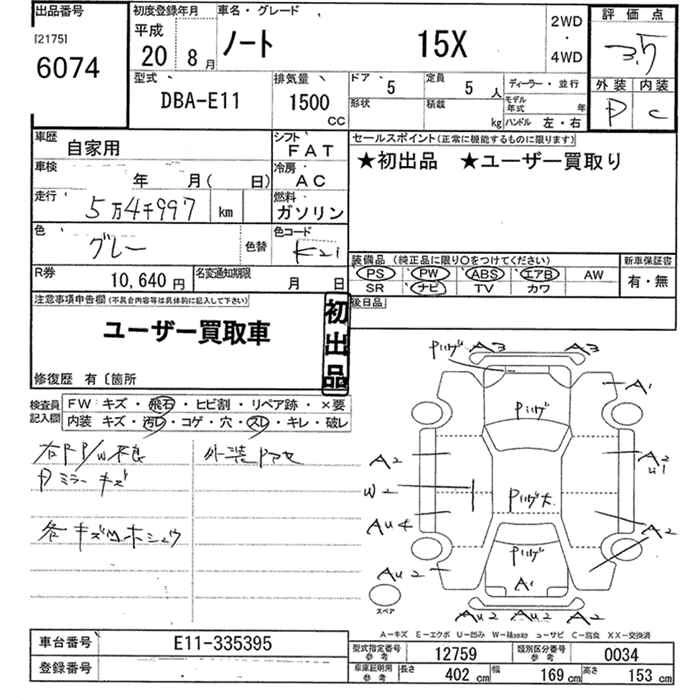 出品番号 初度登録年月 車名・グレード 2WD・4WD 評価点
[2175] 6074
平成 20 8月 ノート 15X 3.5
外装 内装
P C
型式 排気量 ドア 5 定員 5人 ディーラー・並行
DBA-E11 1500 CC 形状 積載 kg モデル年式 年
ハンドル 左・右
車歴 自家用 シフト FAT セールスポイント(正常に機能するものに限ります)
★初出品 ★ユーザー買取り
車検 年 月( 日) 冷房 AC
走行 5万4千997 km 燃料 ガソリン
色 グレー 色替 色コード K21
装備品 (純正品に限り○をつけてください) 新車保証書
PS PW ABS エアB AW 有・無
SR ナビ TV カワ
R券 10,640円 名変通知期限 月 日
後日品
注意事項申告欄(不具合内容等は具体的に記入して下さい)
ユーザー買取車
初出品
修復歴 有〔箇所
検査員記入欄
FW キズ・飛石・ヒビ割・リペア跡・×要
内装 キズ・汚レ・コゲ・穴・スレ・キレ・破レ
右F P/W不良 外装ドアセ
Rミラーキズ
各キズ凹ホシュウ
Pハゲ A3 A3
A1
Pハゲ
A2
A2
U1
W2
Pハゲ大
AU4
A2
Pハゲ
AU2
A1
スペア
AU2 AU2 A2
A-キズ E-エクボ U-凹み S-サビ C-腐食 XX-交換済
車台番号 E11-335395
登録番号
型式指定番号 参考 12759 類別区分番号 参考 0034
車庫証明用 参考 長さ 402 cm 幅 169 cm 高さ 153 cm